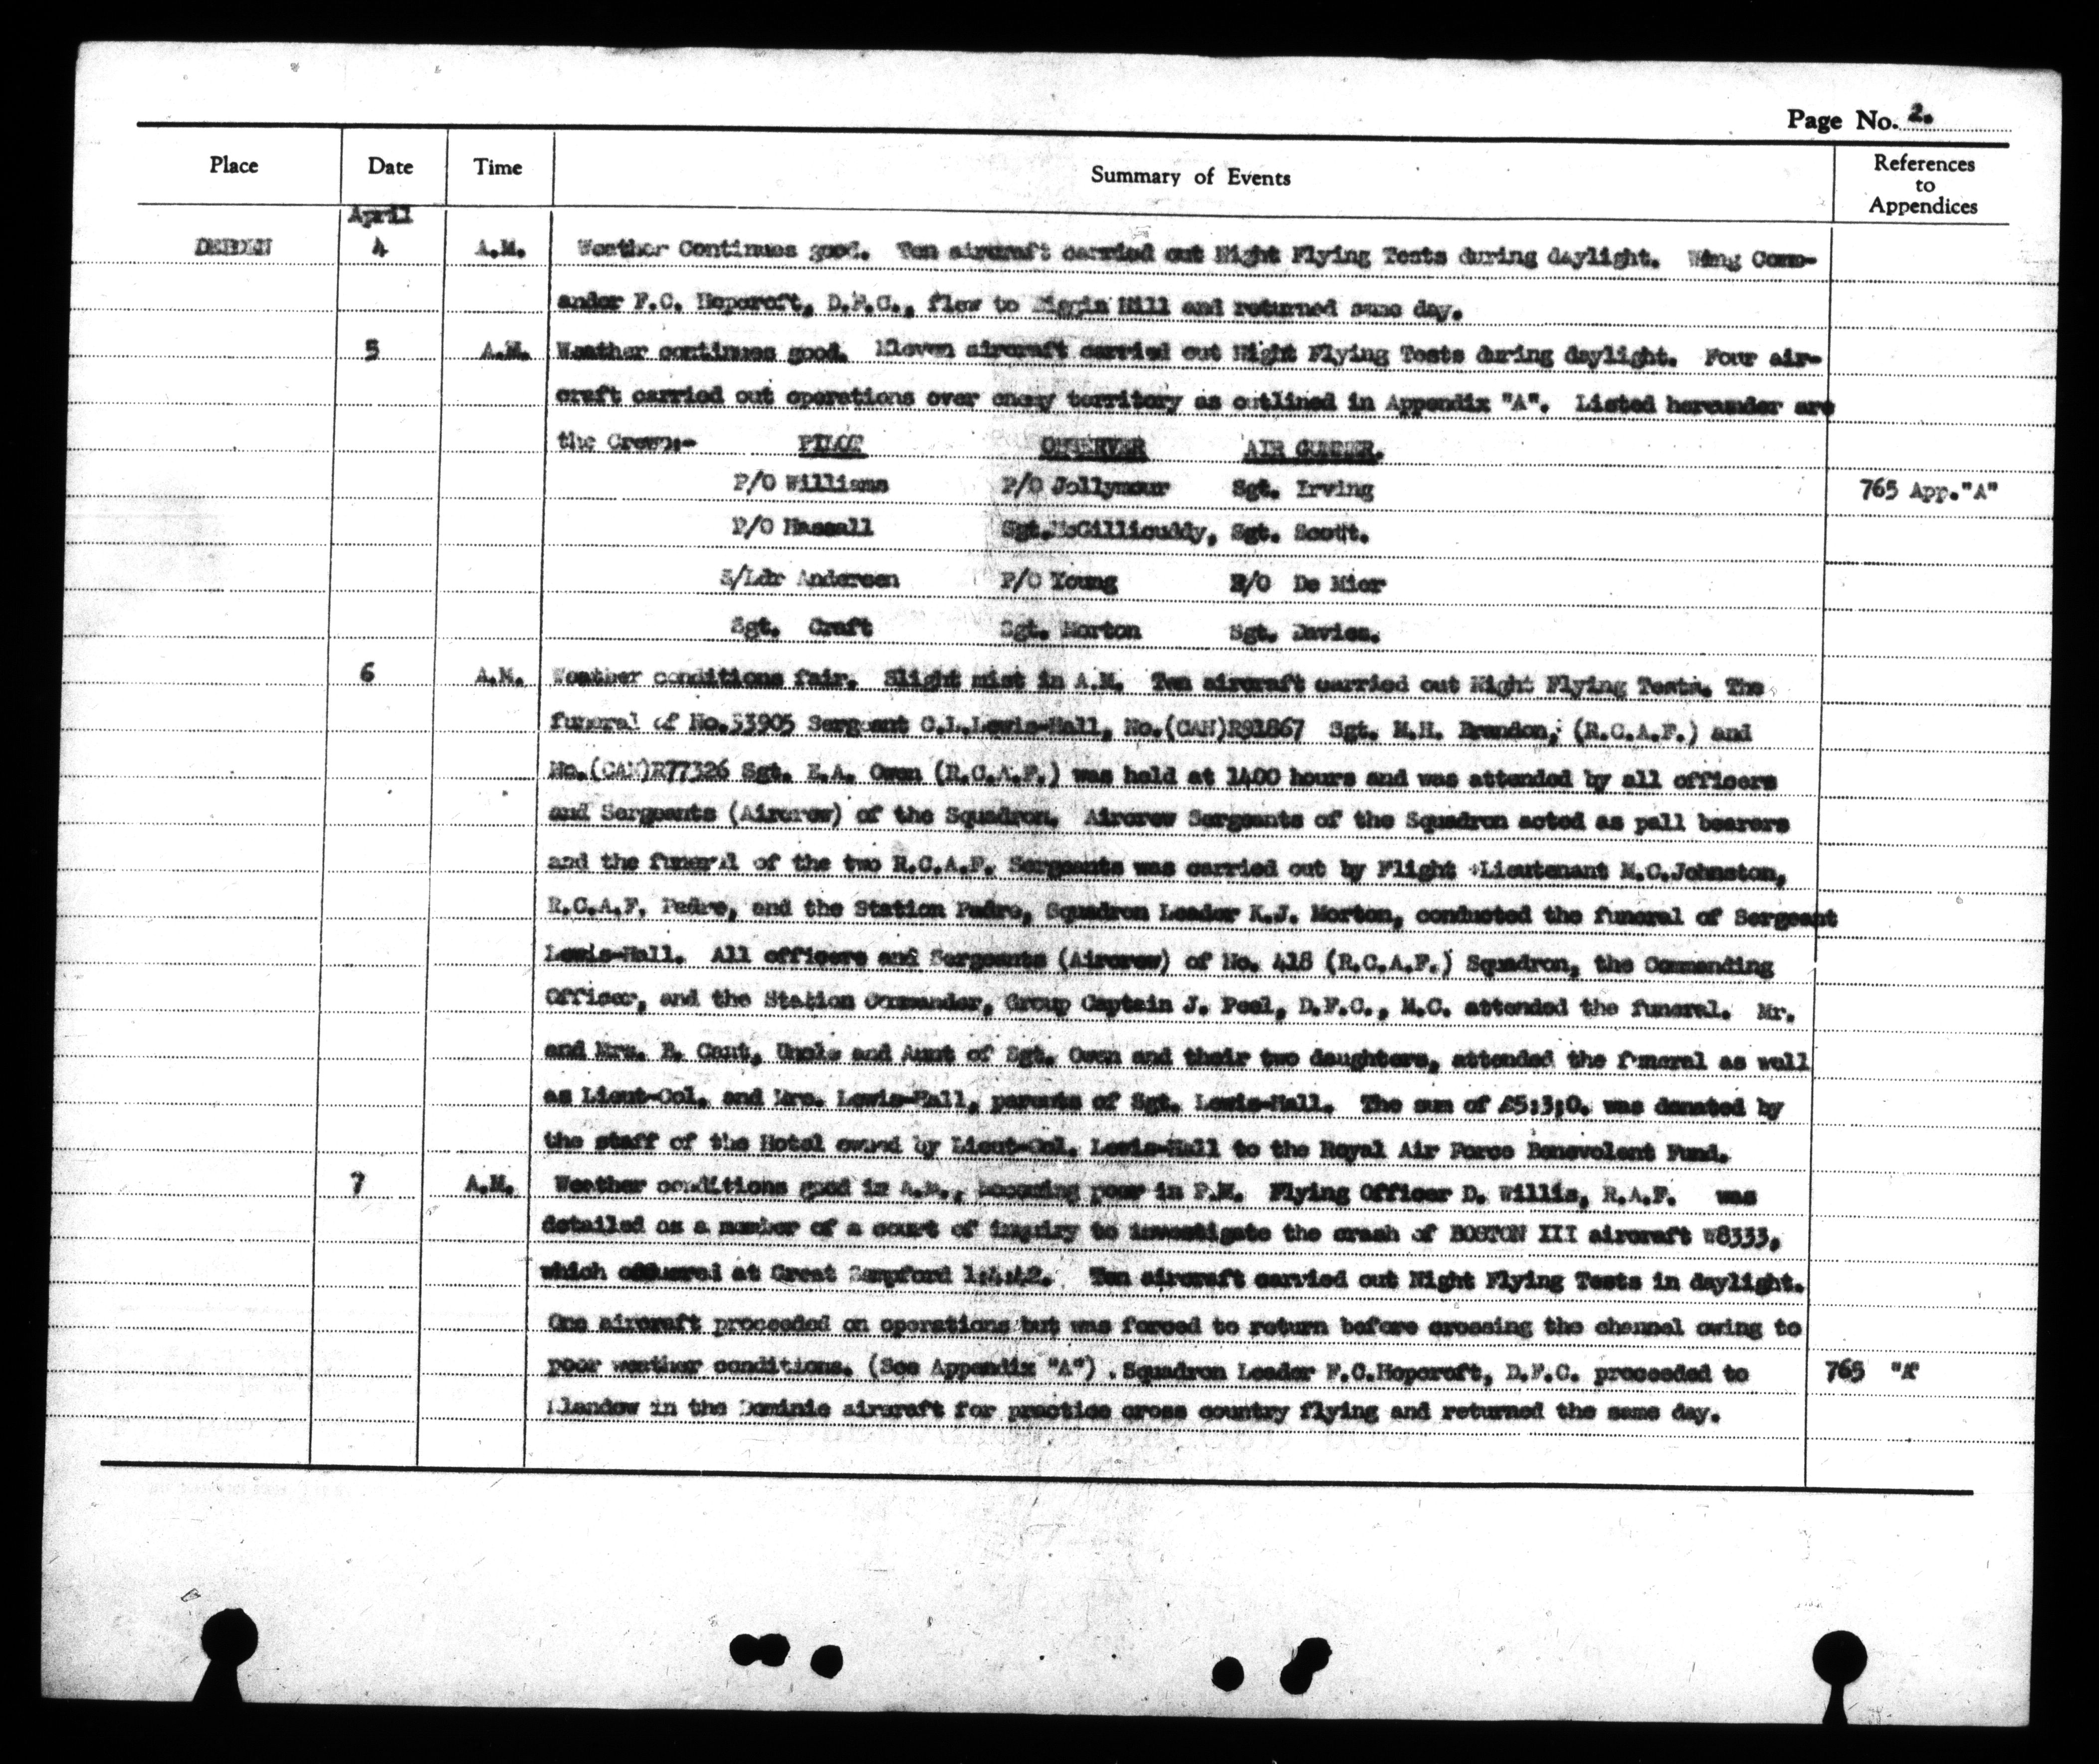 Page No. 2.
Place Date Time Summary of Events References to Appendices
April
DEBDEN 4 A.M. Weather Continues good. Ten aircraft carried out Night Flying Tests during daylight. Wing Comm-
ander F.C. Hopcroft, D.F.C., flew to Biggin Hill and returned same day.
5 A.M. Weather continues good. Eleven aircraft carried out Night Flying Tests during daylight. Four air-
craft carried out operations over enemy territory as outlined in Appendix "A". Listed hereunder are
the Crews:- PILOT OBSERVER AIR GUNNER.
P/O Williams P/O Jollymour Sgt. Irving 765 App."A"
P/O Hassall Sgt.McGillicuddy, Sgt. Scott.
S/Ldr Andersen P/O Young P/O De Mier
Sgt. Craft Sgt. Morton Sgt. Davies.
6 A.M. Weather conditions fair. Slight mist in A.M. Ten aircraft carried out Night Flying Tests. The
funeral of No.53905 Sergeant C.L.Lewis-Hall, No.(CAN)R91867 Sgt. M.H. Brandon, (R.C.A.F.) and
No.(CAN)R77326 Sgt. E.A. Owen (R.C.A.F.) was held at 1400 hours and was attended by all officers
and Sergeants (Aircrew) of the Squadron. Aircrew Sergeants of the Squadron acted as pall bearers
and the funeral of the two R.C.A.F. Sergeants was carried out by Flight Lieutenant M.C.Johnston,
R.C.A.F. Padre, and the Station Padre, Squadron Leader K.J. Morton, conducted the funeral of Sergeant
Lewis-Hall. All officers and Sergeants (Aircrew) of No. 418 (R.C.A.F.) Squadron, the Commanding
Officer, and the Station Commander, Group Captain J. Peel, D.F.C., M.C. attended the funeral. Mr.
and Mrs. B. Cant, Uncle and Aunt of Sgt. Owen and their two daughters, attended the funeral as well
as Lieut-Col. and Mrs. Lewis-Hall, parents of Sgt. Lewis-Hall. The sum of £5:3;0. was donated by
the staff of the Hotel owned by Lieut-Col. Lewis-Hall to the Royal Air Force Benevolent Fund.
7 A.M. Weather conditions good in A.M., becoming poor in P.M. Flying Officer D. Willis, R.A.F. was
detailed as a member of a court of inquiry to investigate the crash of BOSTON III aircraft W8333,
which occurred at Great Sampford 1:4:42. Ten aircraft carried out Night Flying Tests in daylight.
One aircraft proceeded on operations but was forced to return before crossing the channel owing to
poor weather conditions. (See Appendix "A"). Squadron Leader F.C.Hopcroft, D.F.C. proceeded to 765 "A"
Llandow in the Dominie aircraft for practice cross country flying and returned the same day.